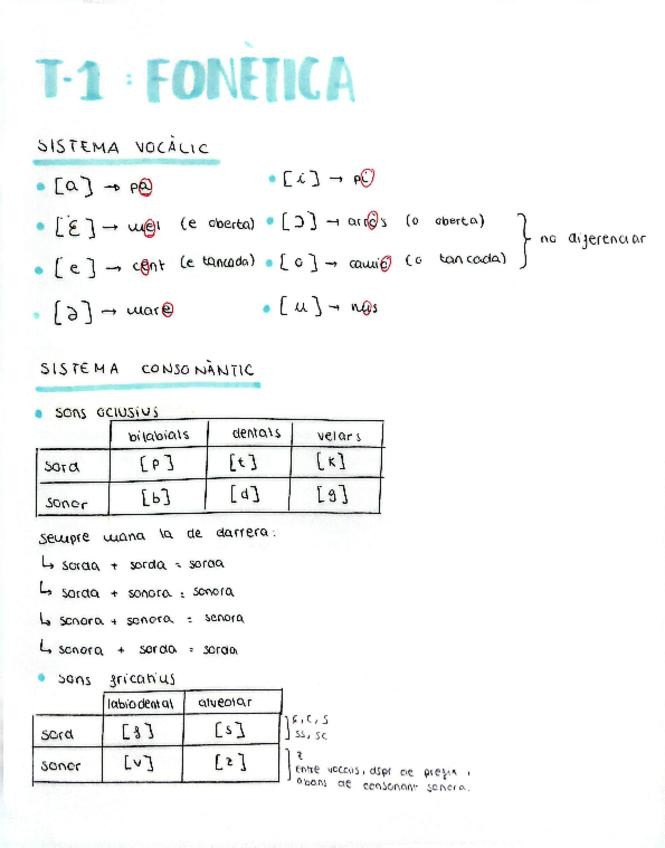 T-1 : FONÈTICA
SISTEMA VOCÀLIC
[a] → pa
[i] → pi
[ɛ] → mel (e oberta)
[ɔ] → arròs (o oberta)
[e] → cent (e tancada)
[o] → camió (o tancada)
no diferenciar
[ə] → mare
[u] → nus
SISTEMA CONSONÀNTIC
sons oclusius
bilabials dentals velars
sord [p] [t] [k]
sonor [b] [d] [g]
sempre mana la de darrera:
↳ sorda + sorda = sorda
↳ sorda + sonora = sonora
↳ sonora + sonora = sonora
↳ sonora + sorda = sorda
sons fricatius
labiodental alveolar
sord [f] [s]
ç, c, s
ss, sc
sonor [v] [z]
z
entre vocals, dspr de prefix,
abans de consonant sonora.